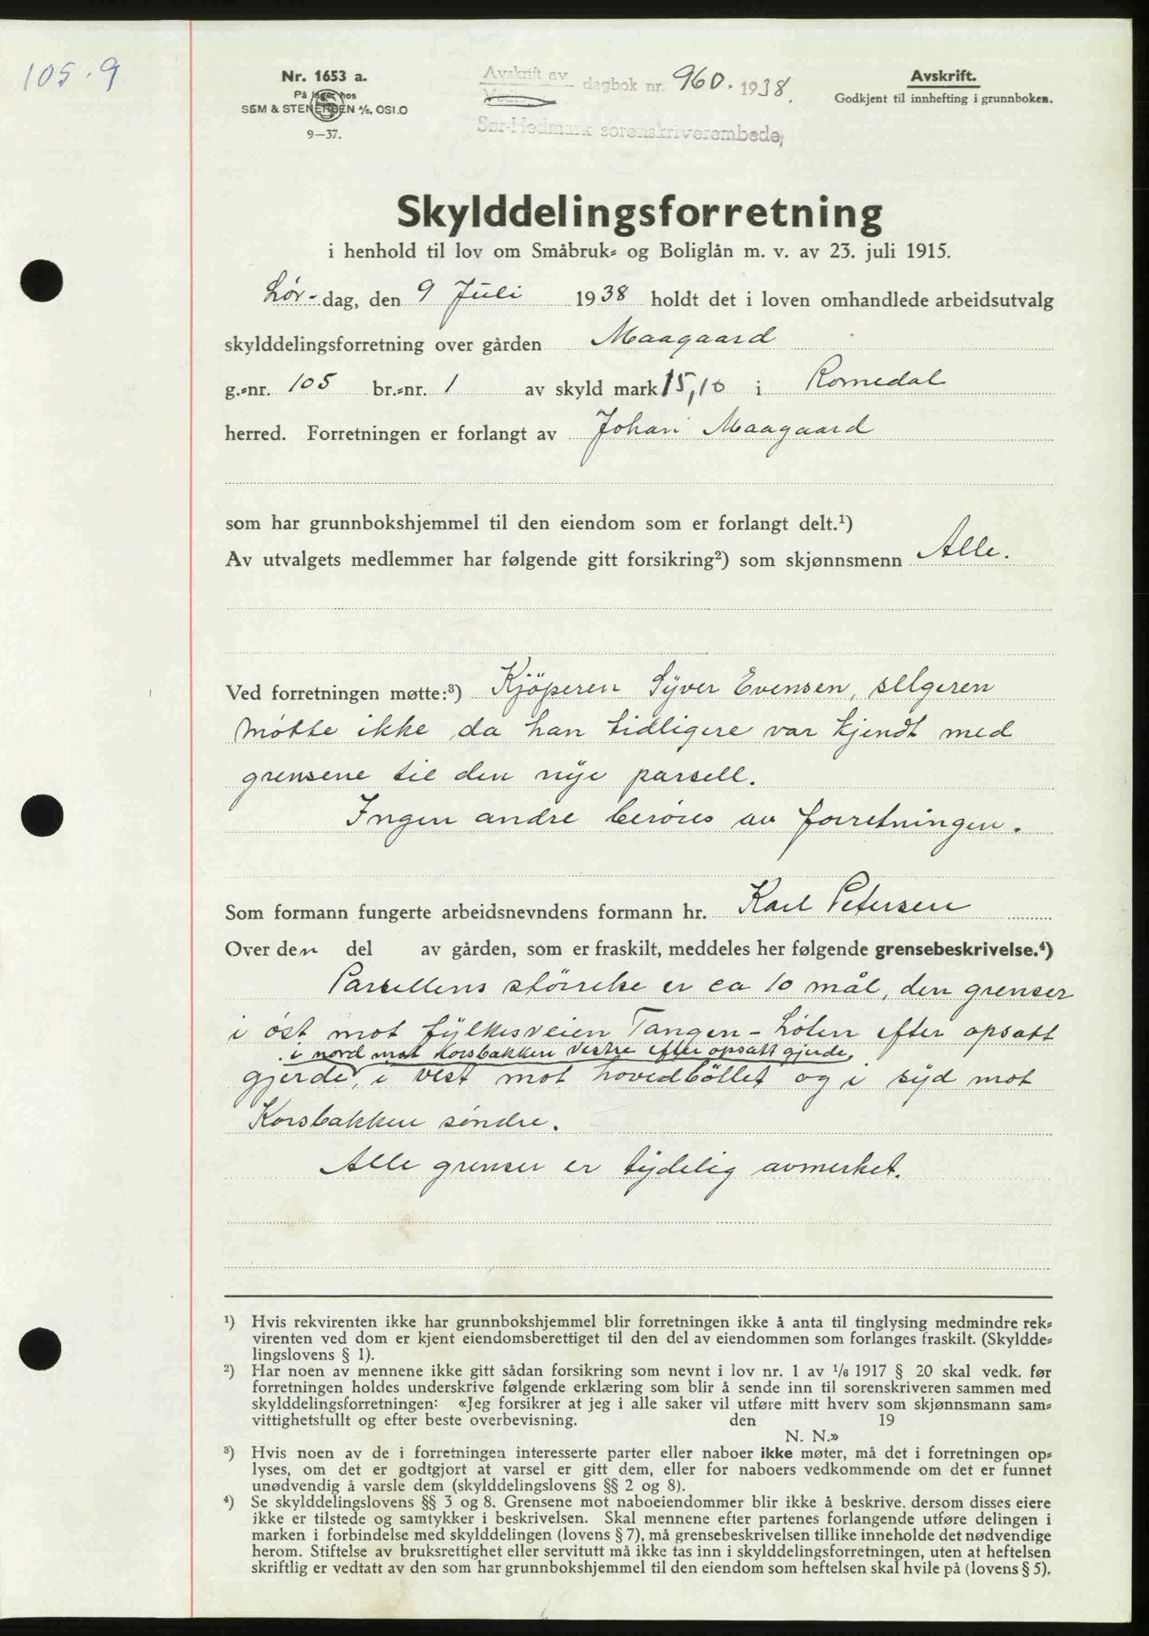 105.9
Nr. 1653 a.
På lager hos
SEM & STENERSEN A/S, OSLO
9—37.
Avskrift av dagbok nr. 960. 1938.
Sør-Hedmark sorenskriverembede,
Avskrift.
Godkjent til innhefting i grunnboken.
Skylddelingsforretning
i henhold til lov om Småbruk- og Boliglån m. v. av 23. juli 1915.
Lør-dag, den 9 Juli 1938 holdt det i loven omhandlede arbeidsutvalg
skylddelingsforretning over gården Maagaard
g.-nr. 105 br.-nr. 1 av skyld mark 15,10 i Romedal
herred. Forretningen er forlangt av Johan Maagaard
som har grunnbokshjemmel til den eiendom som er forlangt delt.¹)
Av utvalgets medlemmer har følgende gitt forsikring²) som skjønnsmenn Alle.
Ved forretningen møtte:³) Kjöperen Syver Evensen, selgeren
møtte ikke da han tidligere var kjendt med
grensene til den nye parsell.
Ingen andre berøres av forretningen.
Som formann fungerte arbeidsnevndens formann hr. Karl Petersen
Over den del av gården, som er fraskilt, meddeles her følgende grensebeskrivelse.⁴)
Parsellens størrelse er ca 10 mål, den grenser
i øst mot fylkesveien Tangen - Løten efter opsatt
i nord mot Korsbakken vestre efter opsatt gjerde,
gjerde, i vest mot hovedbøllet og i syd mot
Korsbakken søndre.
Alle grenser er tydelig avmerket.
¹) Hvis rekvirenten ikke har grunnbokshjemmel blir forretningen ikke å anta til tinglysing medmindre rek-
virenten ved dom er kjent eiendomsberettiget til den del av eiendommen som forlanges fraskilt. (Skyldde-
lingslovens § 1).
²) Har noen av mennene ikke gitt sådan forsikring som nevnt i lov nr. 1 av 1/6 1917 § 20 skal vedk. før
forretningen holdes underskrive følgende erklæring som blir å sende inn til sorenskriveren sammen med
skylddelingsforretningen: «Jeg forsikrer at jeg i alle saker vil utføre mitt hverv som skjønnsmann sam-
vittighetsfullt og efter beste overbevisning. den 19
N. N.»
³) Hvis noen av de i forretningen interesserte parter eller naboer ikke møter, må det i forretningen op-
lyses, om det er godtgjort at varsel er gitt dem, eller for naboers vedkommende om det er funnet
unødvendig å varsle dem (skylddelingslovens §§ 2 og 8).
⁴) Se skylddelingslovens §§ 3 og 8. Grensene mot naboeiendommer blir ikke å beskrive, dersom disses eiere
ikke er tilstede og samtykker i beskrivelsen. Skal mennene efter partenes forlangende utføre delingen i
marken i forbindelse med skylddelingen (lovens § 7), må grensebeskrivelsen tillike inneholde det nødvendige
herom. Stiftelse av bruksrettighet eller servitutt må ikke tas inn i skylddelingsforretningen, uten at heftelsen
skriftlig er vedtatt av den som har grunnbokshjemmel til den eiendom som heftelsen skal hvile på (lovens § 5).